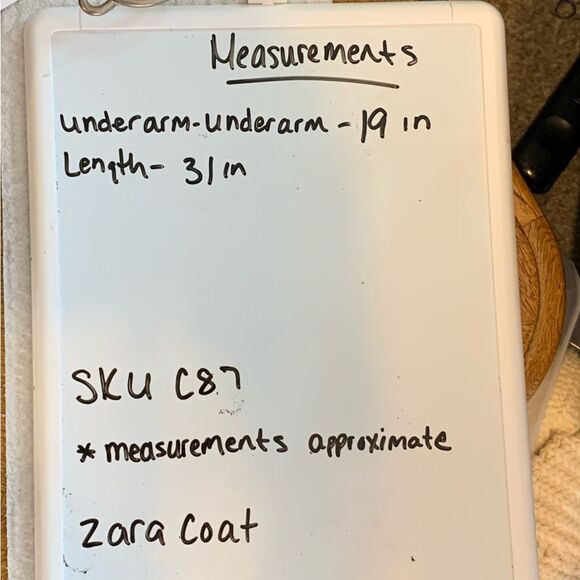 Measurements
underarm-underarm - 19 in
Length- 31 in
SKU C87
* measurements approximate
Zara Coat